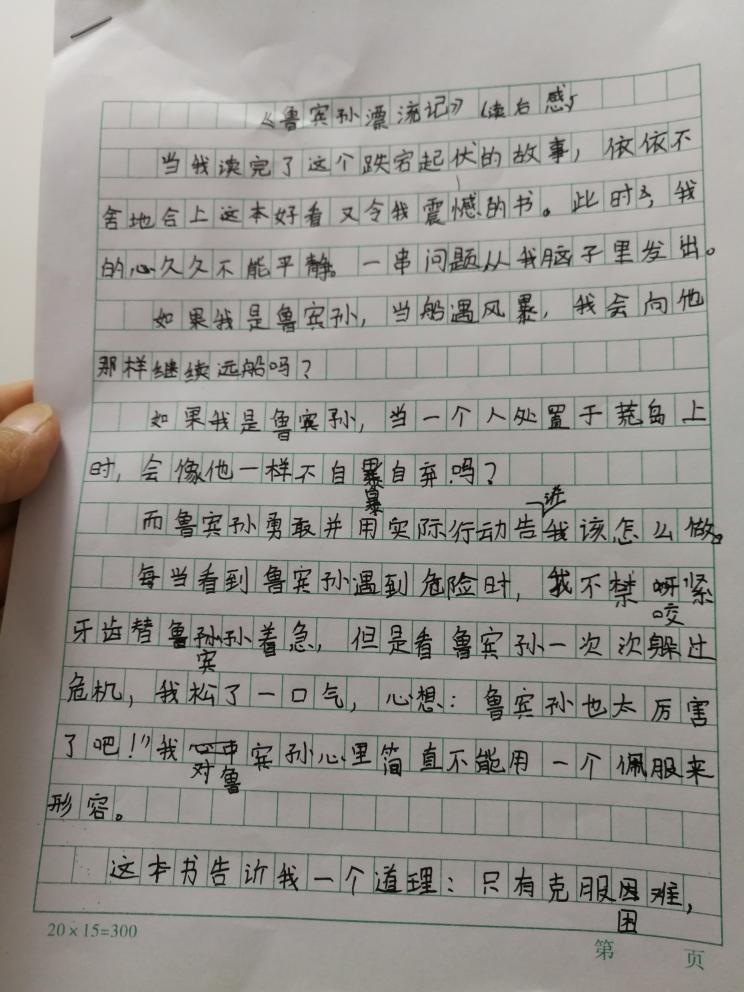 《鲁宾孙漂流记》(读后感)
当我读完了这个跌宕起伏的故事，依依不
舍地合上这本好看又令我震憾的书。此时，我
的心久久不能平静。一串问题从我脑子里发出。
如果我是鲁宾孙，当船遇风暴，我会向他
那样继续远船吗？
如果我是鲁宾孙，当一个人处置于荒岛上
时，会像他一样不自暴自弃吗？
而鲁宾孙勇敢并用实际行动告诉我该怎么做。
每当看到鲁宾孙遇到危险时，我不禁咬紧
牙齿替鲁宾孙着急，但是看鲁宾孙一次次躲过
危机，我松了一口气，心想：鲁宾孙也太厉害
了吧！”我对鲁宾孙心里简直不能用一个佩服来
形容。
这本书告诉我一个道理：只有克服困难，
20×15=300
第 页